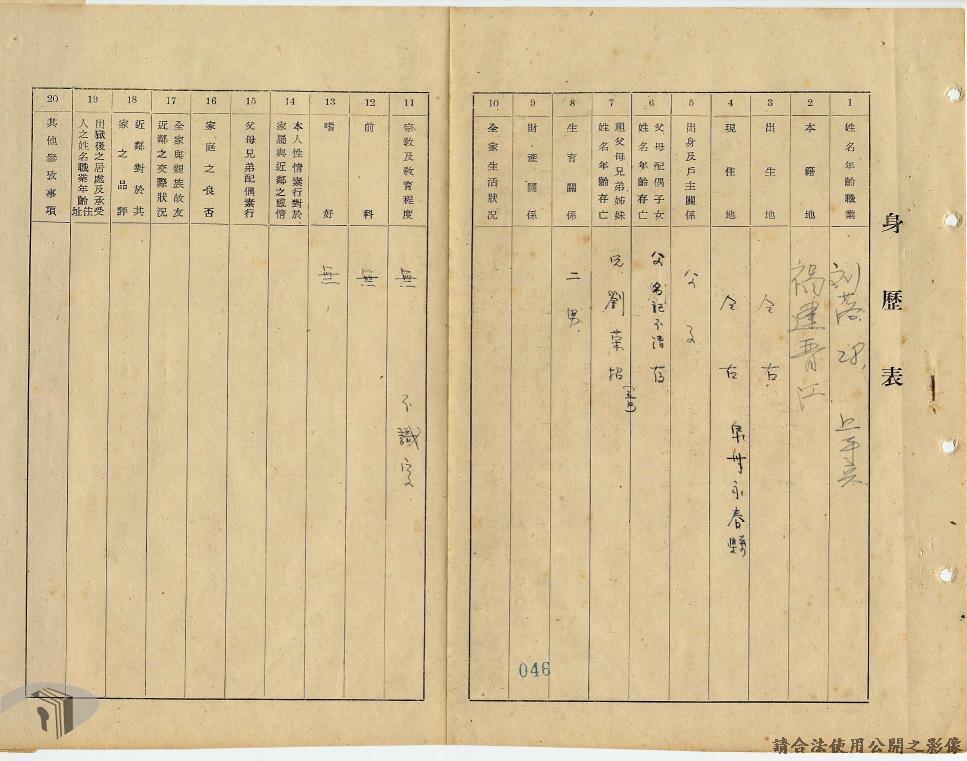 身歷表
1
姓名年齡職業
28
2
本籍地
福建晋江
3
出生地
仝右
4
現住地
仝右
泉州永春縣
5
出身及戶主關係
父
6
父母配偶子女
姓名年齡存亡
父 名記不清 存
7
祖父母兄弟姊妹
姓名年齡存亡
兄 劉榮招
8
生育關係
二男
9
財產關係
10
全家生活狀況
046
11
宗教及教育程度
無
不識字
12
前科
無
13
嗜好
無
14
本人性情素行對於
家屬與近鄰之感情
15
父母兄弟配偶素行
16
家庭之良否
17
全家與親族故友
近鄰之交際狀況
18
近鄰對於其
家之品評
19
出獄後之居處及承受
人之姓名職業年齡住址
20
其他參攷事項
請合法使用公開之影像